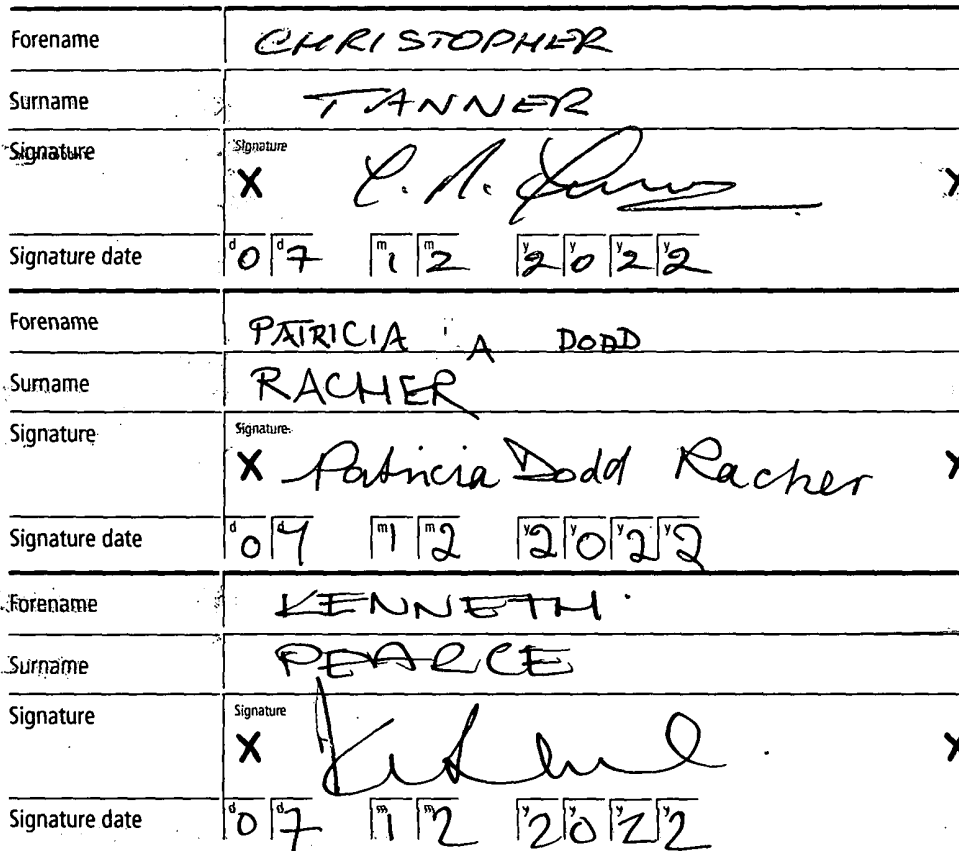 Forename CHRISTOPHER
Surname TANNER
Signature Signature X C. A. X
Signature date d0 d7 m1 m2 y2 y0 y2 y2
Forename PATRICIA A DODD
Surname RACHER
Signature Signature X Patricia Dodd Racher X
Signature date d0 d7 m1 m2 y2 y0 y2 y2
Forename KENNETH
Surname PEARCE
Signature Signature X X
Signature date d0 d7 m1 m2 y2 y0 y2 y2